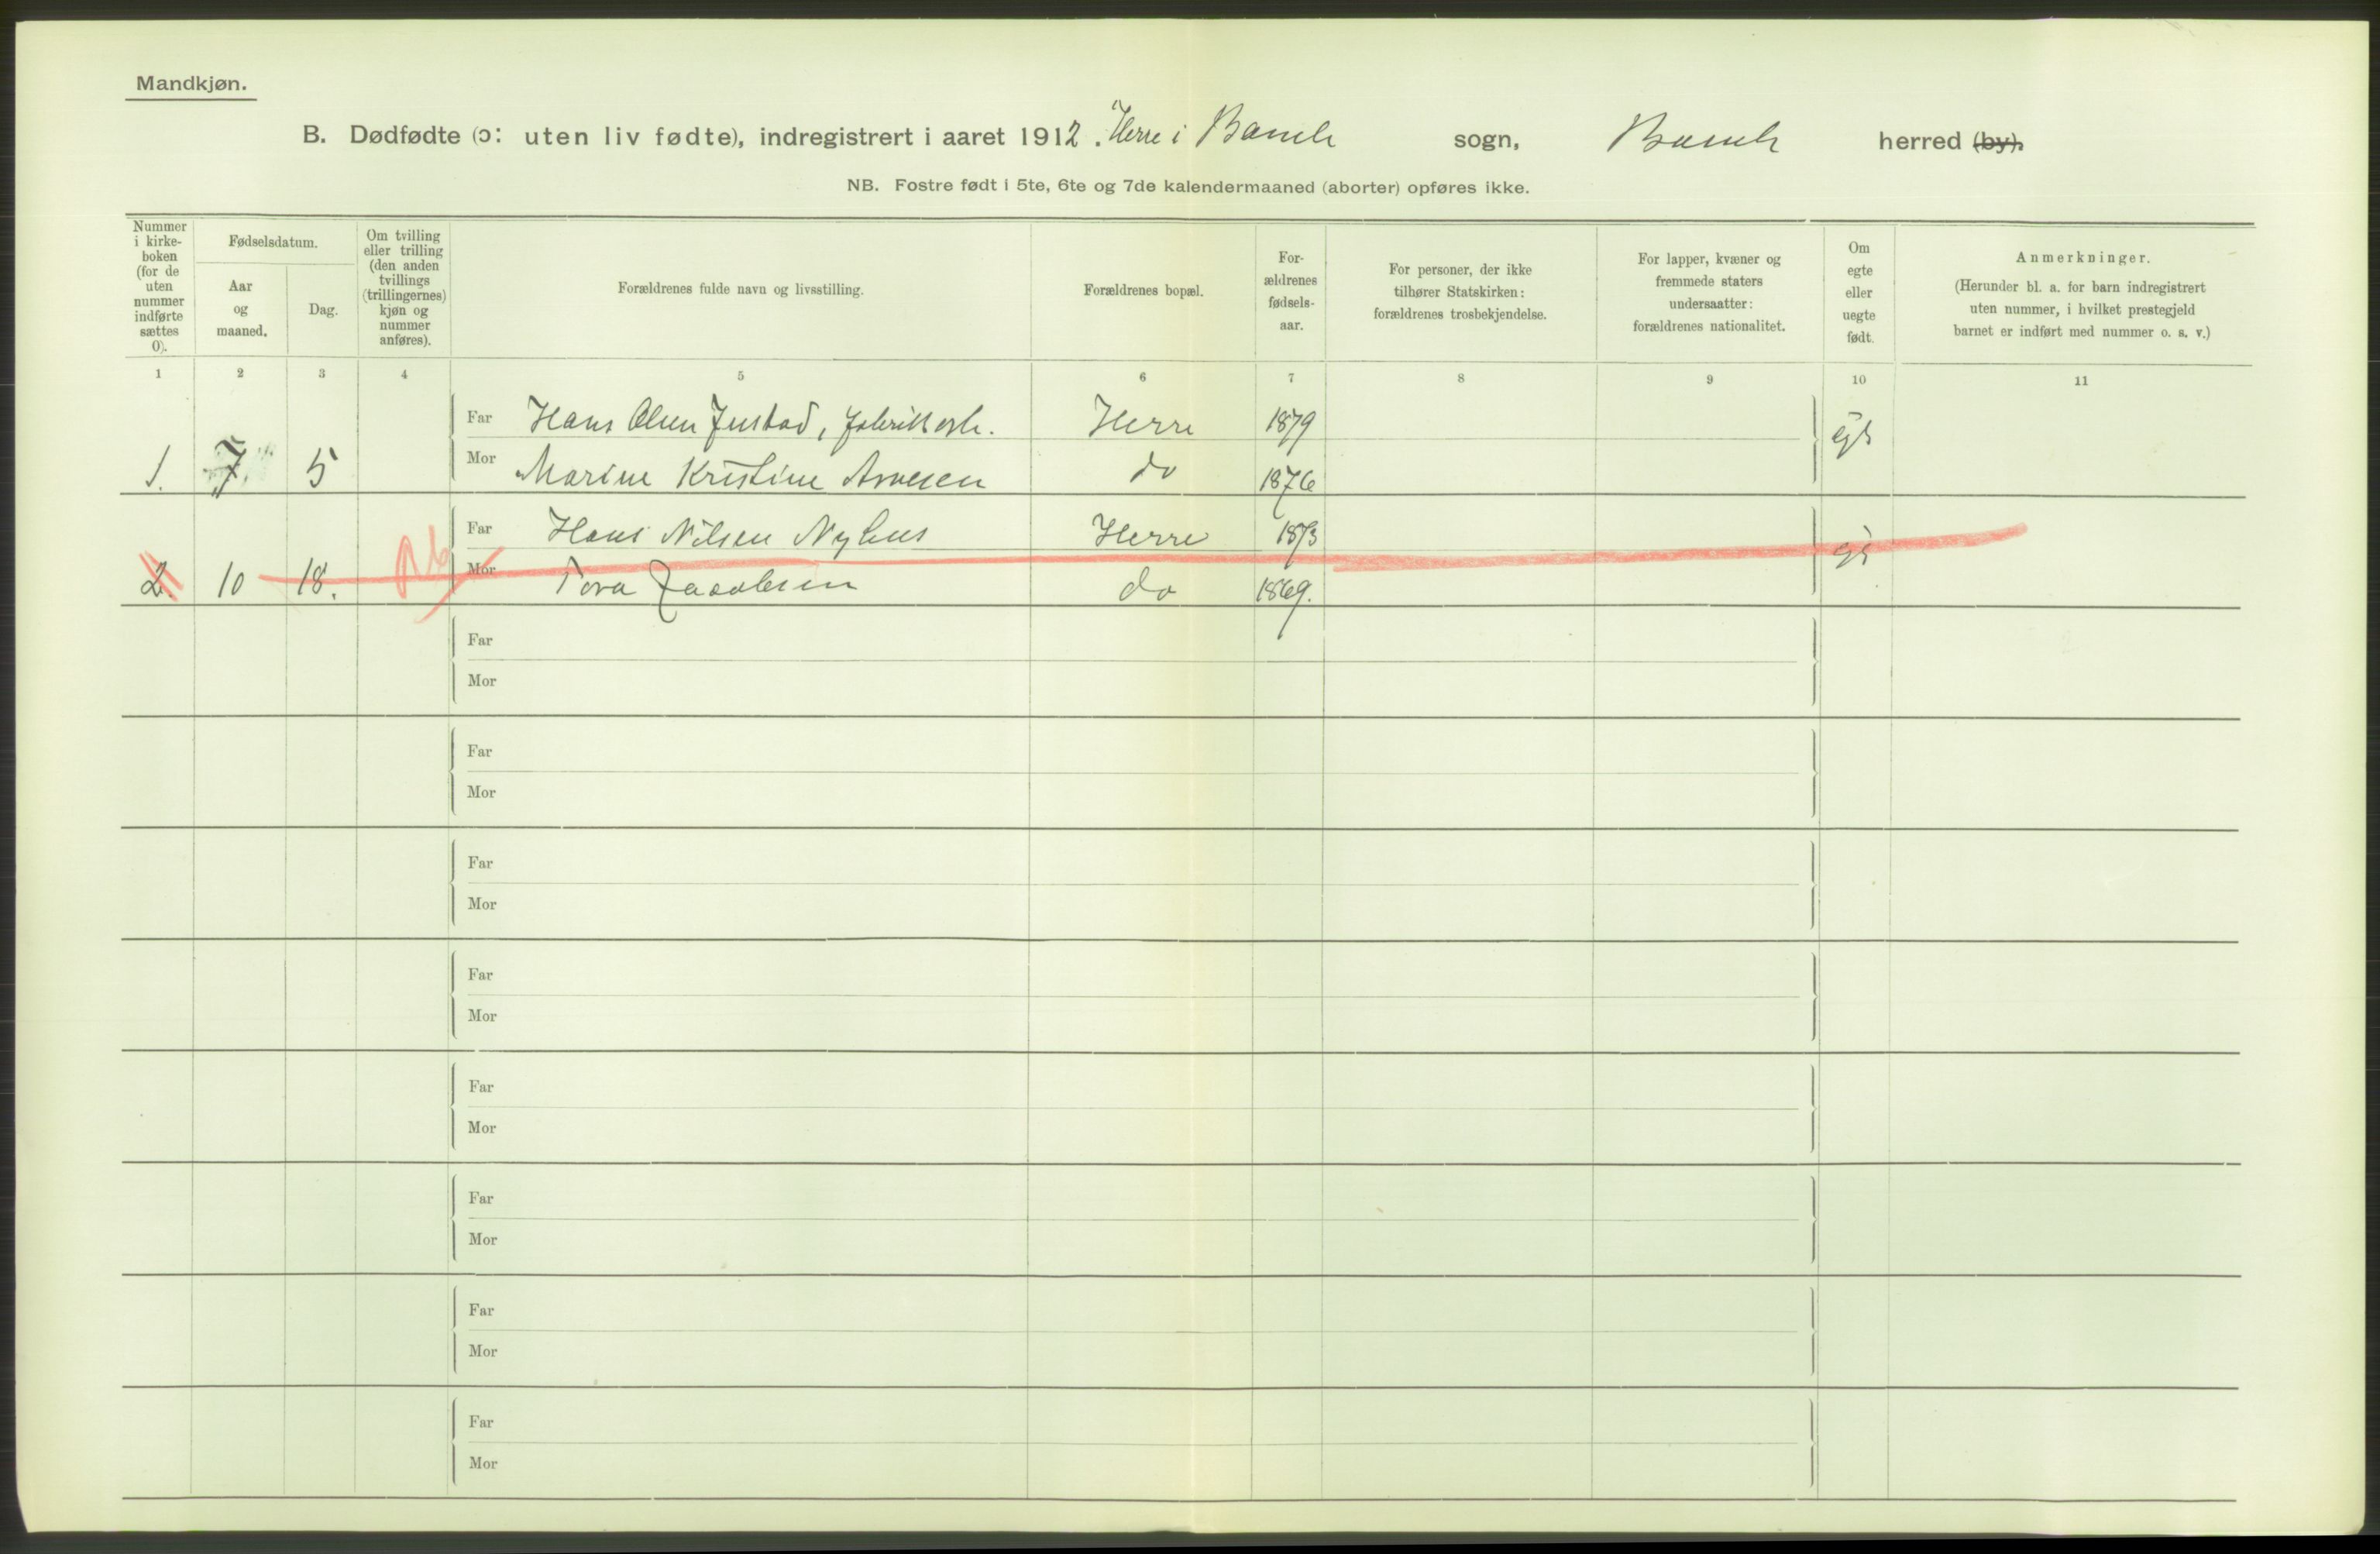 Mandkjøn.
B. Dødfødte (ɔ: uten liv fødte), indregistrert i aaret 1912. Herre i Bamle sogn, Bamle herred (by).
NB. Fostre født i 5te, 6te og 7de kalendermaaned (aborter) opføres ikke.
Nummer
i kirke-
boken
(for de
uten
nummer
indførte
sættes
0).
Fødselsdatum.
Aar
og
maaned.
Dag.
Om tvilling
eller trilling
(den anden
tvillings
(trillingernes)
kjøn og
nummer
anføres).
Forældrenes fulde navn og livsstilling.
Forældrenes bopæl.
For-
ældrenes
fødsels-
aar.
For personer, der ikke
tilhører Statskirken:
forældrenes trosbekjendelse.
For lapper, kvæner og
fremmede staters
undersaatter:
forældrenes nationalitet.
Om
egte
eller
uegte
født.
Anmerkninger.
(Herunder bl. a. for barn indregistrert
uten nummer, i hvilket prestegjeld
barnet er indført med nummer o. s. v.)
1 2 3 4 5 6 7 8 9 10 11
Far Hans Olsen Justad, fabrikarb. Herre 1879 egt
1. 7 5 Mor Marine Kristine do 1876
Far Hans Nilsen Nyhus Herre 1873
2. 10 18. Mor Tora Jacobsen do 1869.
Far
Mor
Far
Mor
Far
Mor
Far
Mor
Far
Mor
Far
Mor
Far
Mor
Far
Mor